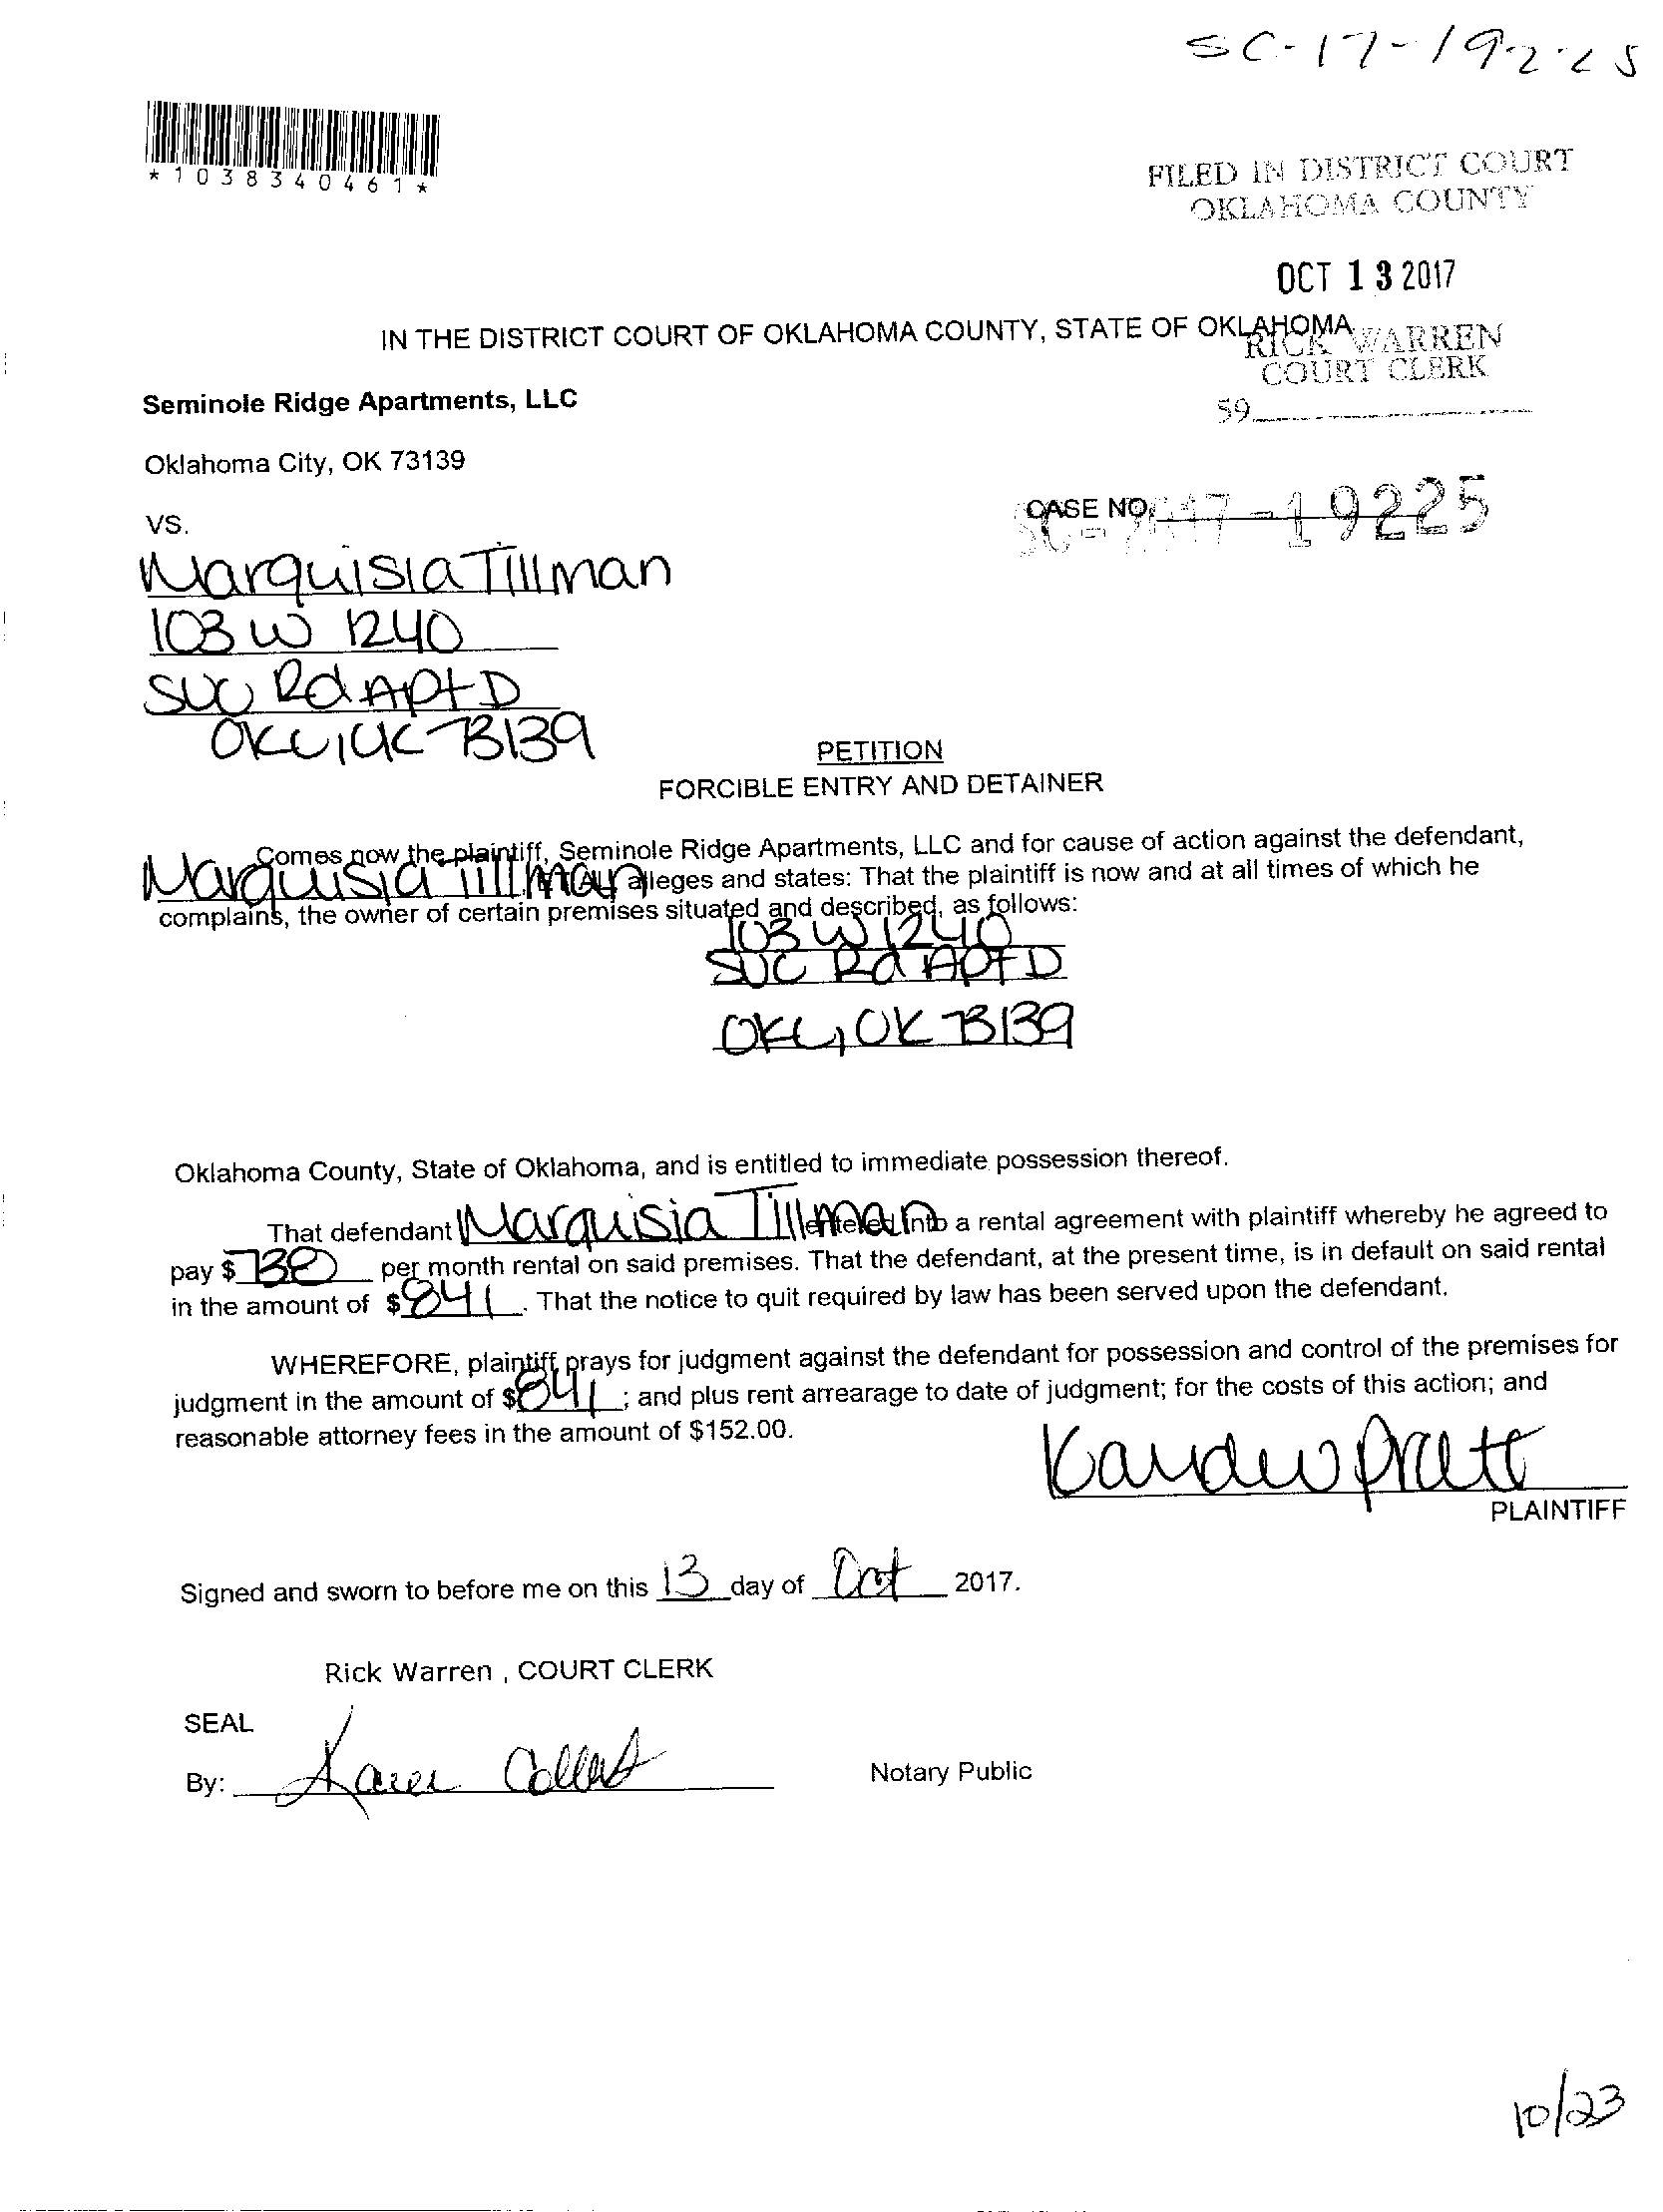 SC-17-19225
*1038340461*
FILED IN DISTRICT COURT
OKLAHOMA COUNTY
OCT 13 2017
IN THE DISTRICT COURT OF OKLAHOMA COUNTY, STATE OF OKLAHOMA
RICK WARREN
COURT CLERK
Seminole Ridge Apartments, LLC
59
Oklahoma City, OK 73139
CASE NO.
SC-2017-19225
VS.
Marquisia Tillman
103 W 1240
SVC Rd Apt D
OKC, OK 73139
PETITION
FORCIBLE ENTRY AND DETAINER
Comes now the plaintiff, Seminole Ridge Apartments, LLC and for cause of action against the defendant,
Marquisia Tillman alleges and states: That the plaintiff is now and at all times of which he
complains, the owner of certain premises situated and described, as follows:
103 W 1240
SVC Rd Apt D
OKC, OK 73139
Oklahoma County, State of Oklahoma, and is entitled to immediate possession thereof.
That defendant Marquisia Tillman entered into a rental agreement with plaintiff whereby he agreed to
pay $ per month rental on said premises. That the defendant, at the present time, is in default on said rental
in the amount of $841. That the notice to quit required by law has been served upon the defendant.
WHEREFORE, plaintiff prays for judgment against the defendant for possession and control of the premises for
judgment in the amount of $841; and plus rent arrearage to date of judgment; for the costs of this action; and
reasonable attorney fees in the amount of $152.00.
Pratt
PLAINTIFF
Signed and sworn to before me on this 13 day of Oct 2017.
Rick Warren , COURT CLERK
SEAL
By: Karen Notary Public
10/23